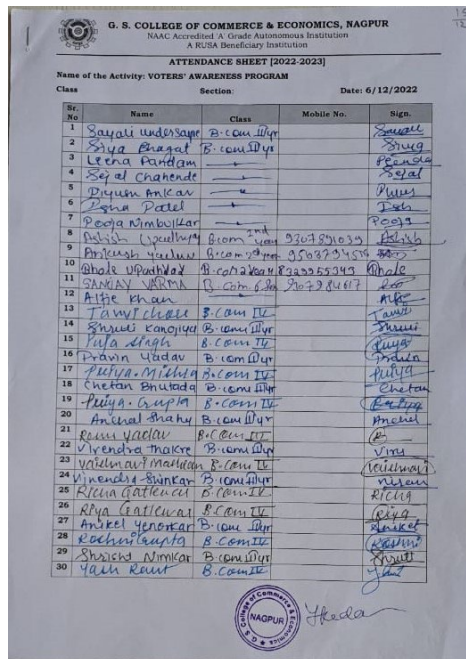 G. S. COLLEGE OF COMMERCE & ECONOMICS, NAGPUR
NAAC Accredited 'A' Grade Autonomous Institution
A RUSA Beneficiary Institution
ATTENDANCE SHEET [2022-2023]
Name of the Activity: VOTERS' AWARENESS PROGRAM
Class Section: Date: 6/12/2022
Sr. No Name Class Mobile No. Sign.
1 Sayali B.com III yr
2 Siya Bhagat B.com III yr
3 Leena Pandam
4 Sejal Chahende Sejal
5 Piyush Ankar
6 Isha Patel Isha
7 Pooja Nimbulkar Pooja
8 Ashish Upadhyay B.com 2nd year 9307891039 Ashish
9 Ankush Yadav B.com
10 Bhole Upadhyay 8329955343 Bhole
11 SANJAY VARMA B.com
12 Alfie Khan Alfie
13 B.com IV Tanvi
14 Shruti Kanojiya B.com III yr Shruti
15 Puja Singh B.com IV
16 Pravin Yadav B.com III yr Pravin
17 Puriya Mishra B.com IV Puriya
18 Chetan Bhutada B.com III yr Chetan
19 Gupta B.com IV
20 Anchal Shahy B.com III yr Anchal
21 Yadav B.com IV
22 Virendra Thakre B.com III yr Viru
23 Vaishnavi B.com IV Vaishnavi
24 B.com III yr
25 Richa Gatlewar B.com IV Richa
26 Riya Gatlewar B.com IV Riya
27 Aniket Yenorkar B.com III yr Aniket
28 Roshni Gupta B.com IV Roshni
29 Nimkar B.com III yr
30 Yash Raut B.com IV
G. S. College of Commerce & Economics
NAGPUR